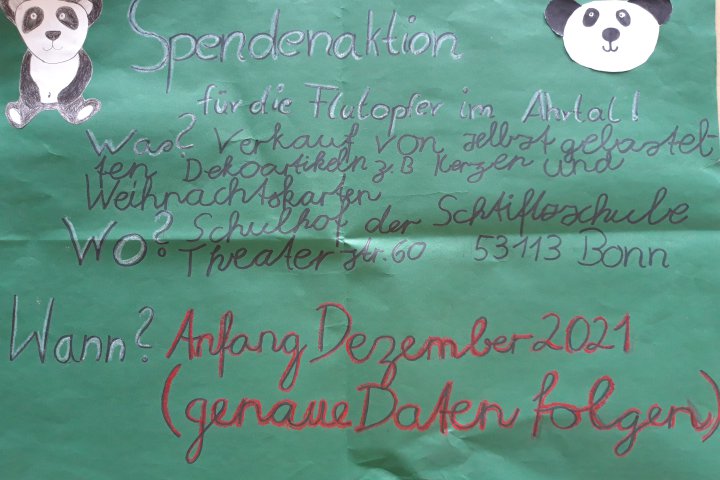 Spendenaktion
für die Flutopfer im Ahrtal!
Was? Verkauf von selbst gebastel-
ten Dekoartikeln z.B Kerzen und
Weihnachtskarten
Wo? Schulhof der Schtiftsschule
Theaterstr. 60 53113 Bonn
Wann? Anfang Dezember 2021
(genaue Daten folgen)